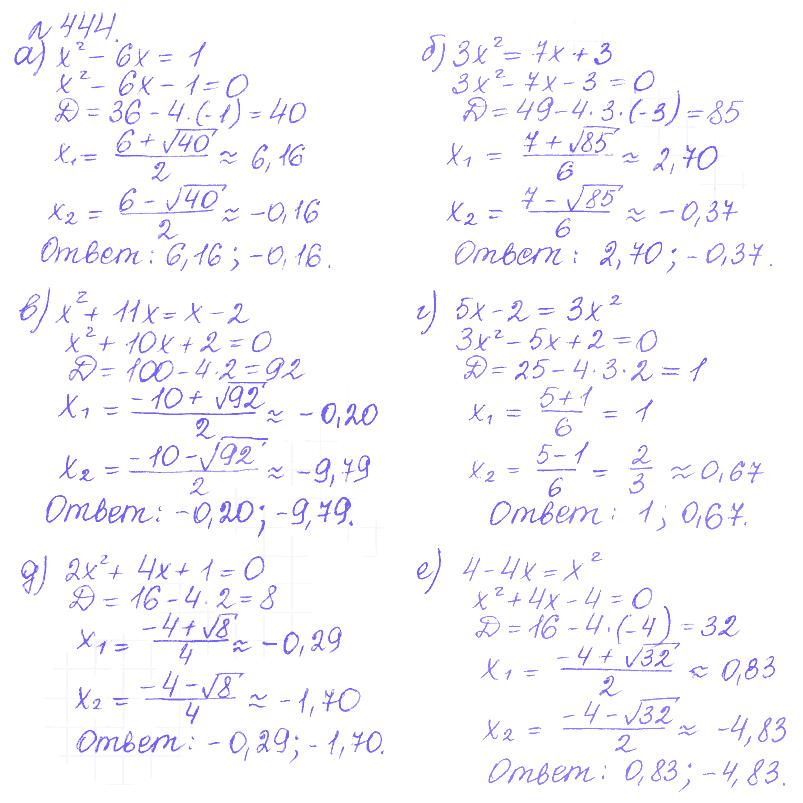 № 444.
а) x² - 6x = 1
x² - 6x - 1 = 0
D = 36 - 4·(-1) = 40
x₁ = (6 + √40)/2 ≈ 6,16
x₂ = (6 - √40)/2 ≈ -0,16
Ответ: 6,16; -0,16.
б) 3x² = 7x + 3
3x² - 7x - 3 = 0
D = 49 - 4·3·(-3) = 85
x₁ = (7 + √85)/6 ≈ 2,70
x₂ = (7 - √85)/6 ≈ -0,37
Ответ: 2,70; -0,37.
в) x² + 11x = x - 2
x² + 10x + 2 = 0
D = 100 - 4·2 = 92
x₁ = (-10 + √92)/2 ≈ -0,20
x₂ = (-10 - √92)/2 ≈ -9,79
Ответ: -0,20; -9,79.
г) 5x - 2 = 3x²
3x² - 5x + 2 = 0
D = 25 - 4·3·2 = 1
x₁ = (5+1)/6 = 1
x₂ = (5-1)/6 = 2/3 ≈ 0,67
Ответ: 1; 0,67.
д) 2x² + 4x + 1 = 0
D = 16 - 4·2 = 8
x₁ = (-4 + √8)/4 ≈ -0,29
x₂ = (-4 - √8)/4 ≈ -1,70
Ответ: -0,29; -1,70.
е) 4 - 4x = x²
x² + 4x - 4 = 0
D = 16 - 4·(-4) = 32
x₁ = (-4 + √32)/2 ≈ 0,83
x₂ = (-4 - √32)/2 ≈ -4,83
Ответ: 0,83; -4,83.